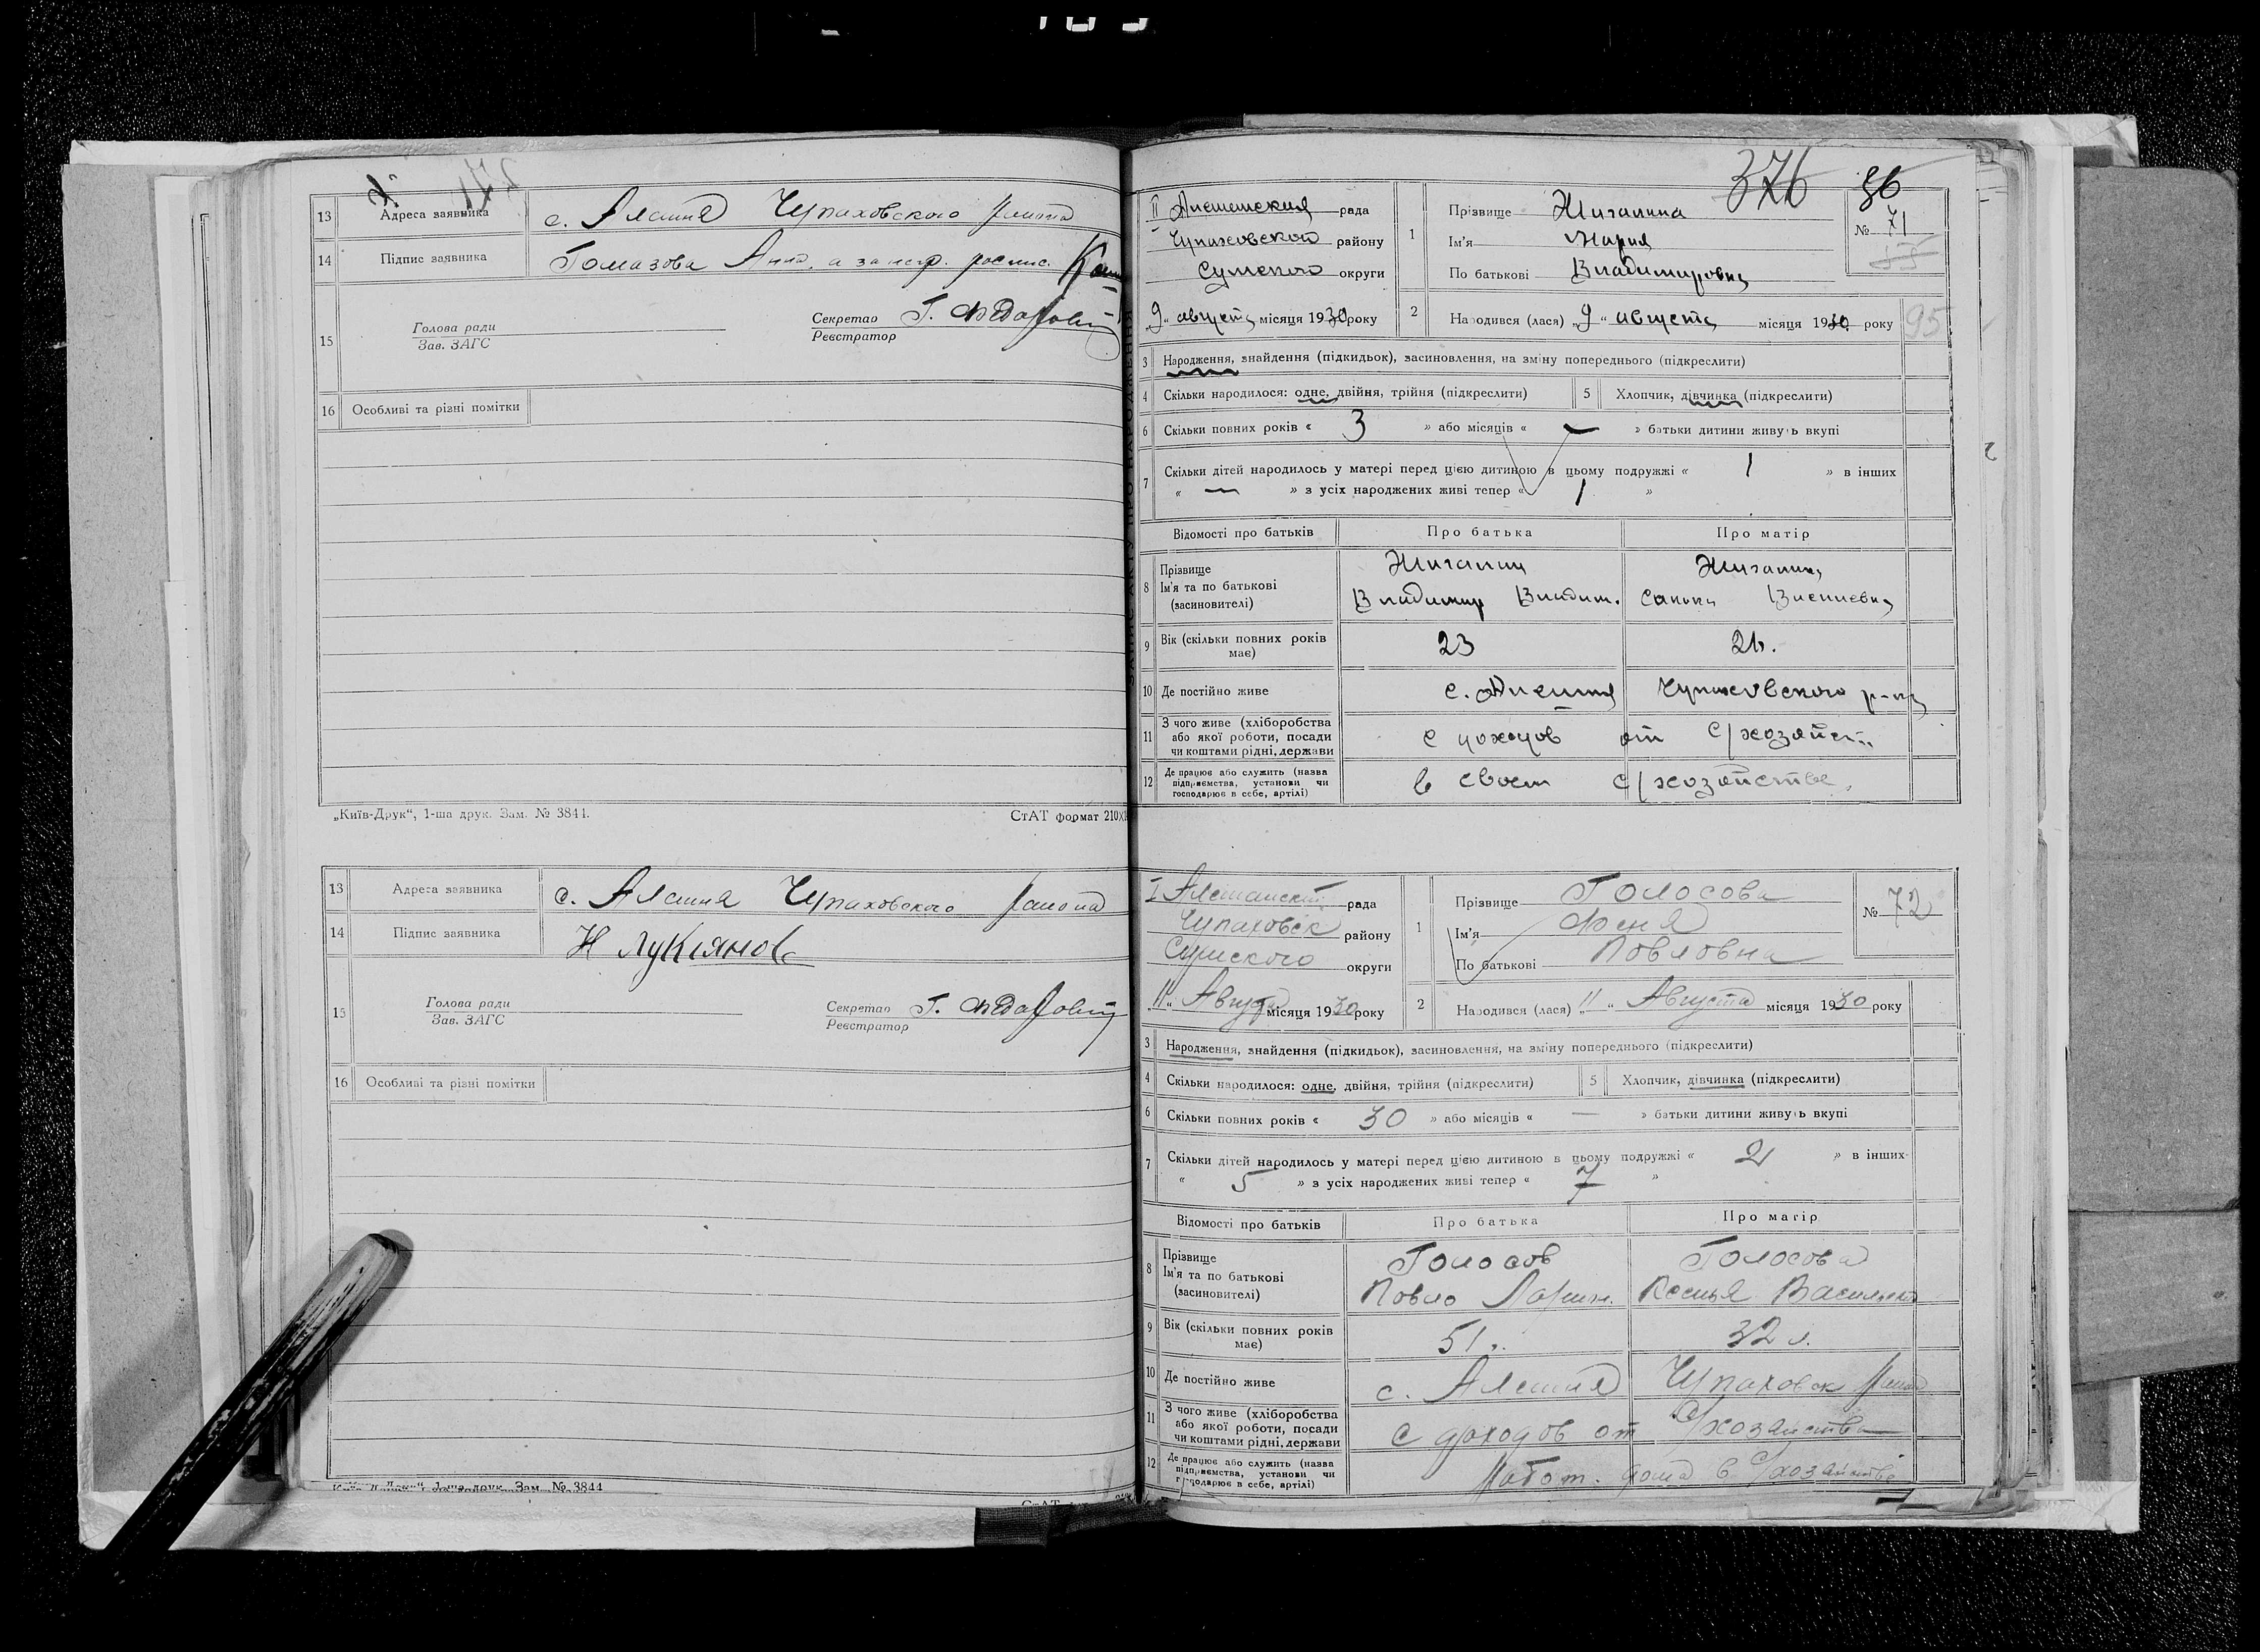 13 Адреса заявника с. Алешня Чупаховского района
14 Підпис заявника Гомазова Анна, а за негр. роспис.
15 Голова ради
Зав. ЗАГС
Секретар
Реєстратор
16 Особливі та різні помітки
„Київ-Друк“, 1-ша друк. Зам. № 3844.
СтАТ формат 210
13 Адреса заявника с. Алешня Чупаховского района
14 Підпис заявника Н Лукіянов
15 Голова ради
Зав. ЗАГС
Секретар
Реєстратор
16 Особливі та різні помітки
1-ша друк. Зам. № 3844
376 86
II Алешенская рада
Чупаховского району
Сумского округи
„9“ августа місяця 1930 року
1 Прізвище Жигалина
Ім'я Мария
По батькові Владимировна
№ 71
2 Народився (лася) „9“ августа місяця 1930 року
95
3 Народження, знайдення (підкидьок), засиновлення, на зміну попереднього (підкреслити)
4 Скільки народилося: одне, двійня, трійня (підкреслити) 5 Хлопчик, дівчинка (підкреслити)
6 Скільки повних років « 3 » або місяців « — » батьки дитини живуть вкупі
7 Скільки дітей народилось у матері перед цією дитиною в цьому подружжі « 1 » в інших
« — » з усіх народжених живі тепер « 1 »
Відомості про батьків Про батька Про матір
8 Прізвище
Ім'я та по батькові
(засиновителі)
Жигалин
Владимир Владим.
Жигалина
9 Вік (скільки повних років має) 23
10 Де постійно живе с. Алешня Чупаховского р-на
11 З чого живе (хліборобства або якої роботи, посади чи коштами рідні, держави с доходов от с/хозяйст.
12 Де працює або служить (назва підприємства, установи чи господарює в себе, артілі) в своем с/хозяйстве.
I Алешанськ. рада
Чупаховск району
Сумского округи
„11“ Август місяця 1930 року
1 Прізвище Голосова
Ім'я Феня
По батькові Повловна
№ 72
2 Народився (лася) „11“ Августа місяця 1930 року
3 Народження, знайдення (підкидьок), засиновлення, на зміну попереднього (підкреслити)
4 Скільки народилося: одне, двійня, трійня (підкреслити) 5 Хлопчик, дівчинка (підкреслити)
6 Скільки повних років « 30 » або місяців « — » батьки дитини живуть вкупі
7 Скільки дітей народилось у матері перед цією дитиною в цьому подружжі « 2 » в інших
« 5 » з усіх народжених живі тепер « 7 »
Відомості про батьків Про батька Про матір
8 Прізвище
Ім'я та по батькові
(засиновителі)
Голосов
Повло
Голосова
9 Вік (скільки повних років має) 51 32 л.
10 Де постійно живе с. Алешня Чупаховск район
11 З чого живе (хліборобства або якої роботи, посади чи коштами рідні, держави с доходов от с/хозяйства
12 Де працює або служить (назва підприємства, установи чи господарює в себе, артілі) работ. дома в с/хозяйстве